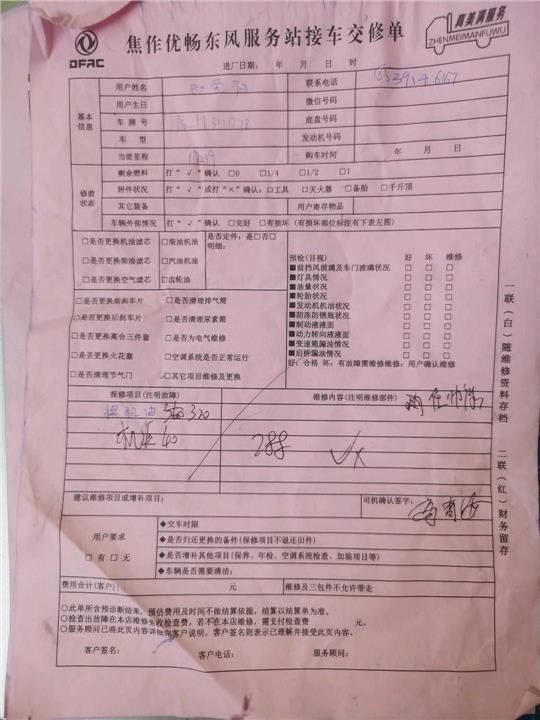 DFAC
焦作优畅东风服务站接车交修单
真美满服务
ZHENMEIMANFUWU
进厂日期： 年 月 日 时
基本信息
用户姓名
联系电话
用户生日
微信号码
车牌号
底盘号码
车型
发动机号码
当前里程
购车时间 年 月 日
修前状态
剩余燃料 打“√”确认 □0 □1/4 □1/2 □1
附件状况 打“√”或打“×”确认：□工具 □灭火器 □备胎 □千斤顶
其它装备
用户寄存物品
车辆外部情况 打“√”确认 □完好 □有损坏（有损坏部位标注有下表左图）
□是否更换机油滤芯 □柴油机油
□是否更换柴油滤芯 □汽油机油
□是否更换空气滤芯 □齿轮油
是否定件：是□否□
明细：
□是否更换前刹车片 □是否清理排气筒
□是否更换后刹车片 □是否清理尿素箱
□是否更换离合三件套 □是否为电气维修
□是否更换火花塞 □空调系统是否正常运行
□是否清理节气门 □其它项目维修及更换
预检(目视) 好 坏 维修
■前挡风玻璃及车门玻璃状况 □ □ □
■灯具情况 □ □ □
■油量状况 □ □ □
■轮胎状况 □ □ □
■发动机机油状况 □ □ □
■防冻防锈瓶状况 □ □ □
■制动液液面 □ □ □
■动力转向液液面 □ □ □
■变速箱漏油情况 □ □ □
■后挤漏油情况 □ □ □
好：合格 坏：有故障需维修维修：用户确认维修
报修项目(注明故障)
维修内容(注明维修部件)
换机油 320
机滤 40
288
建议维修项目或增补项目：
司机确认签字：
用户要求
□有 □无
◆交车时限
◆是否归还更换的备件(保修项目不退还旧件)
◆是否增补其他项目(保养、年检、空调系统检查、加装项目等)
◆车辆是否需要清洁：
费用合计(客户)： 元
维修及三包件不允许带走
○此单所含预诊断结果，预估费用及时间不做结算依据，结算以结算单为准。
○检查出故障在本店维修免收检查费，若不在本店维修，需支付检查费 元。
○服务顾问已将此页内容详细向客户说明，客户签名则表示已理解并接受此页内容。
客户签名： 客户电话： 服务顾问：
一联（白）随维修资料存档 二联（红）财务留存